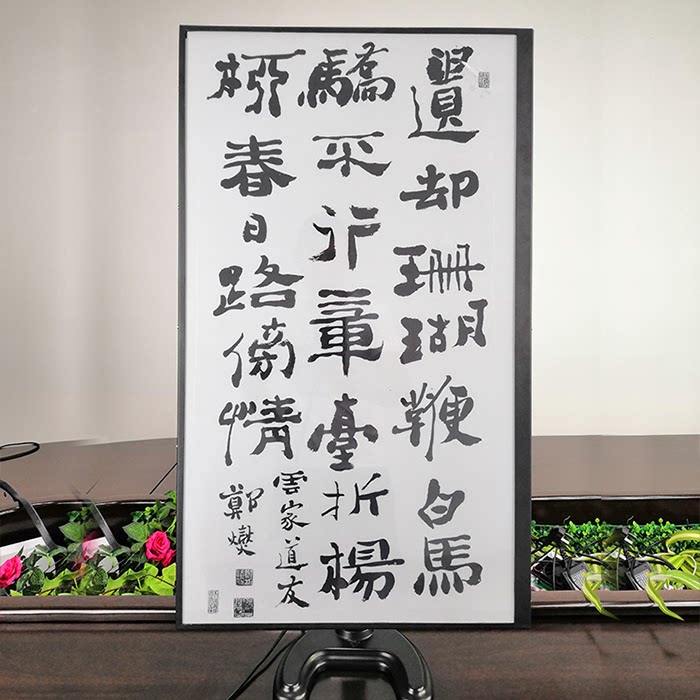 遺却珊瑚鞭白馬
驕不行章臺折楊
柳春日路傍情
雲家道友
鄭燮